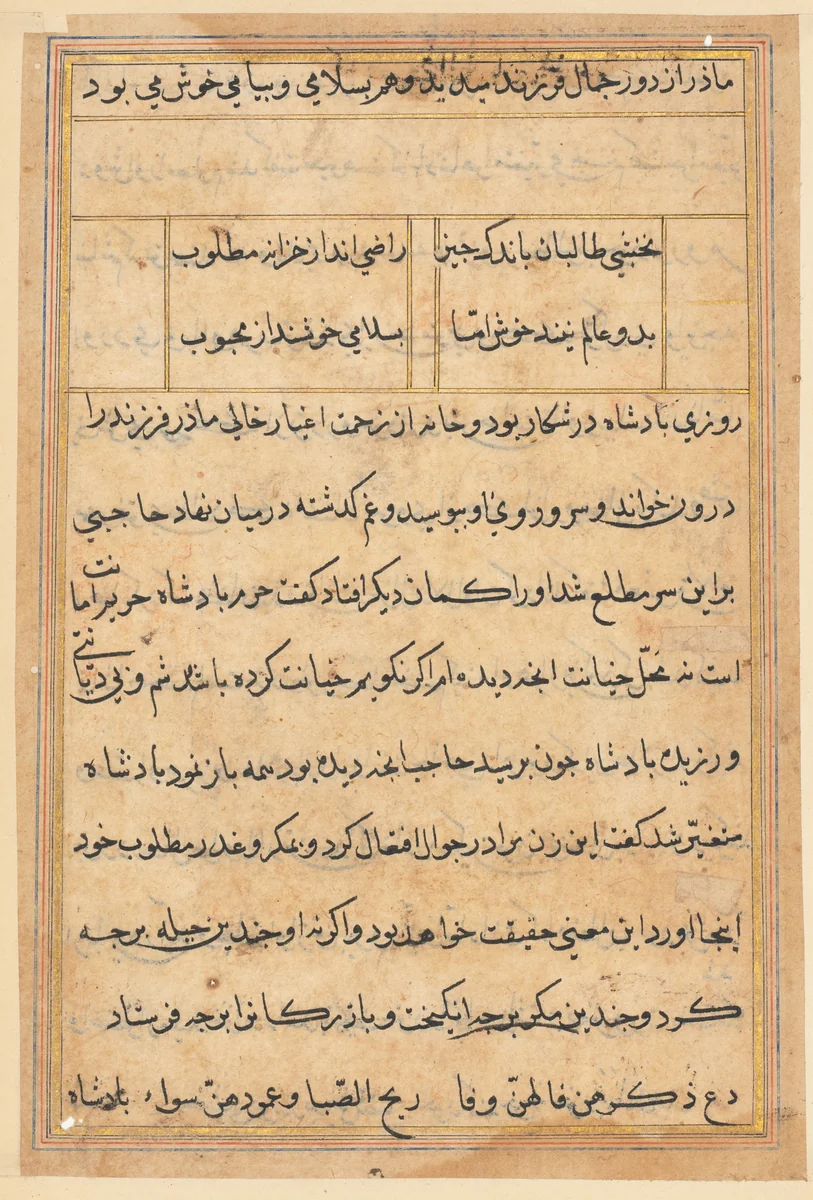 ماذر از دور جمال فرزند میدید و هم بسلامی و بیامی خوش می بود
نخشبی طالبان باندک جیز راضی اند از خزانه مطلوب
بدو عالم نیند خوش امّا بسلامی خوشند از محبوب
روزی بادشاه در شکار بود و خانه از زحمت اغیار خالی ماذر فرزند را
درون خواند و سر و روی او ببوسید و غم کدشته در میان نهاد حاجبی
بر این سر مطلع شد او را کمان دیکر افتاد کفت حرم بادشاه حریم امانت
است نه محلّ خیانت انجه دیده ام اکر نکویم خیانت کرده باشم و بی دیانتی
ورزیده بادشاه جون برسید حاجب انجه دیده بود همه باز نمود بادشاه
متغیّر شد کفت این زن مرا در جوال افتعال کرد و بمکر و غدر مطلوب خود
اینجا اورد این معنی حقیقت خواهد بود و اکر نه او جندین حیله برجه
کرد و جندین مکر برجه انکیخت و بازرکانرا برجه فرستاد
دع ذکرهن فما لهنّ وفا ریح الصّبا و عهودهنّ سواء بادشاه